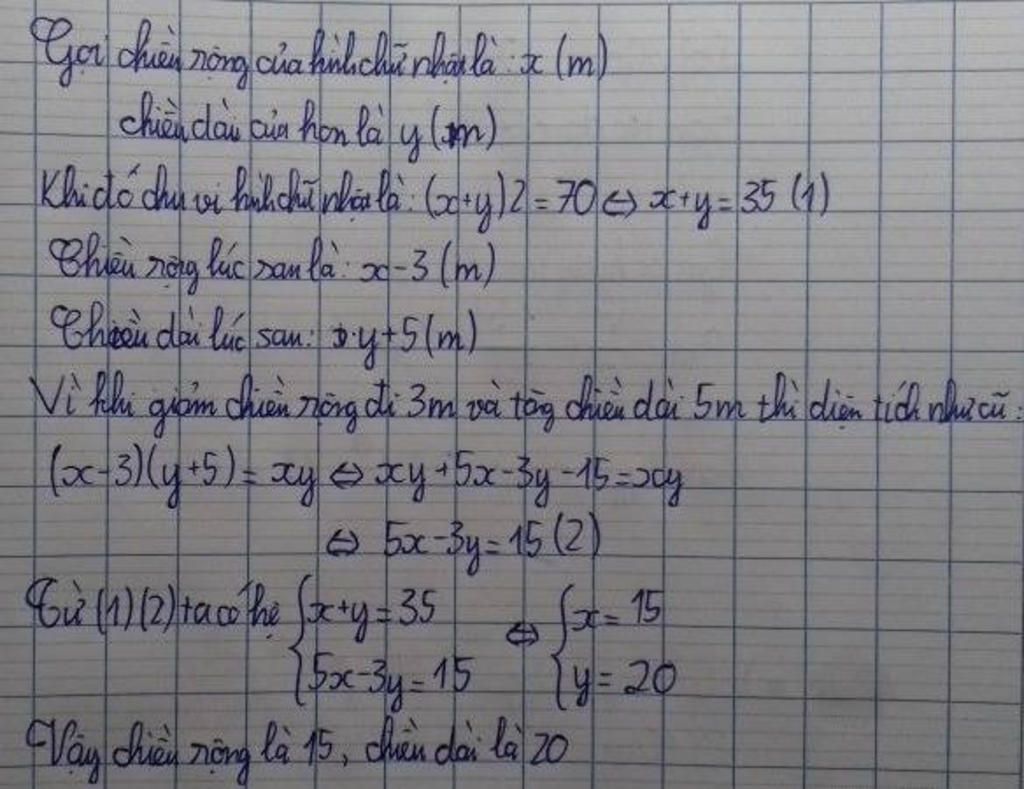 Gọi chiều rộng của hình chữ nhật là: x (m)
chiều dài của hcn là y (m)
Khi đó chu vi hình chữ nhật là: (x+y)2 = 70 ⇔ x+y = 35 (1)
Chiều rộng lúc sau là: x-3 (m)
Chiều dài lúc sau: y+5(m)
Vì khi giảm chiều rộng đi 3m và tăng chiều dài 5m thì diện tích như cũ:
(x-3)(y+5) = xy ⇔ xy+5x-3y-15=xy
⇔ 5x-3y=15 (2)
Từ (1)(2) ta có hệ { x+y=35 ⇔ { x=15
5x-3y=15 y=20
Vậy chiều rộng là 15, chiều dài là 20